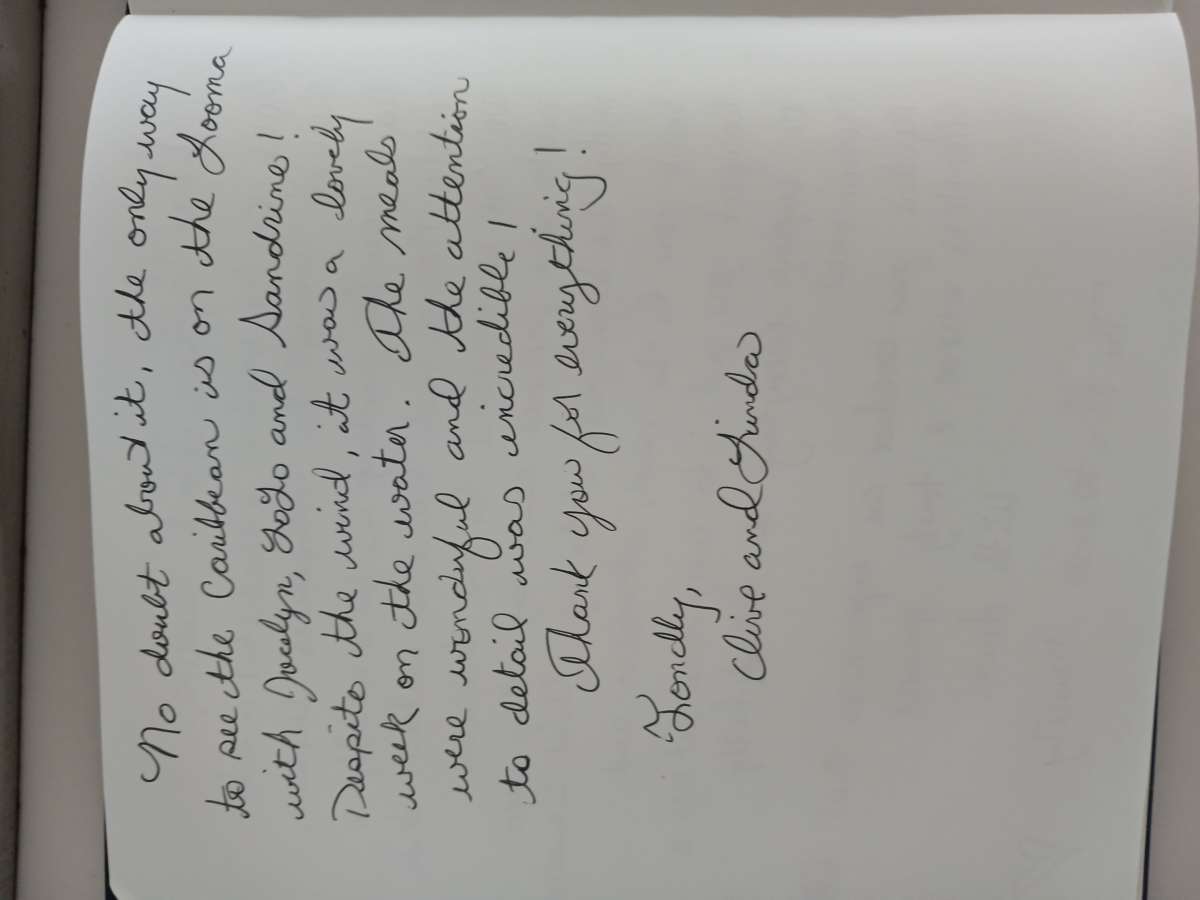 No doubt about it, the only way
to see the Caribbean is on the Looma
with Jocelyn, YoYo and Sandrine!
Despite the wind, it was a lovely
week on the water. The meals
were wonderful and the attention
to detail was incredible!
Thank you for everything!
Fondly,
Clive and Linda